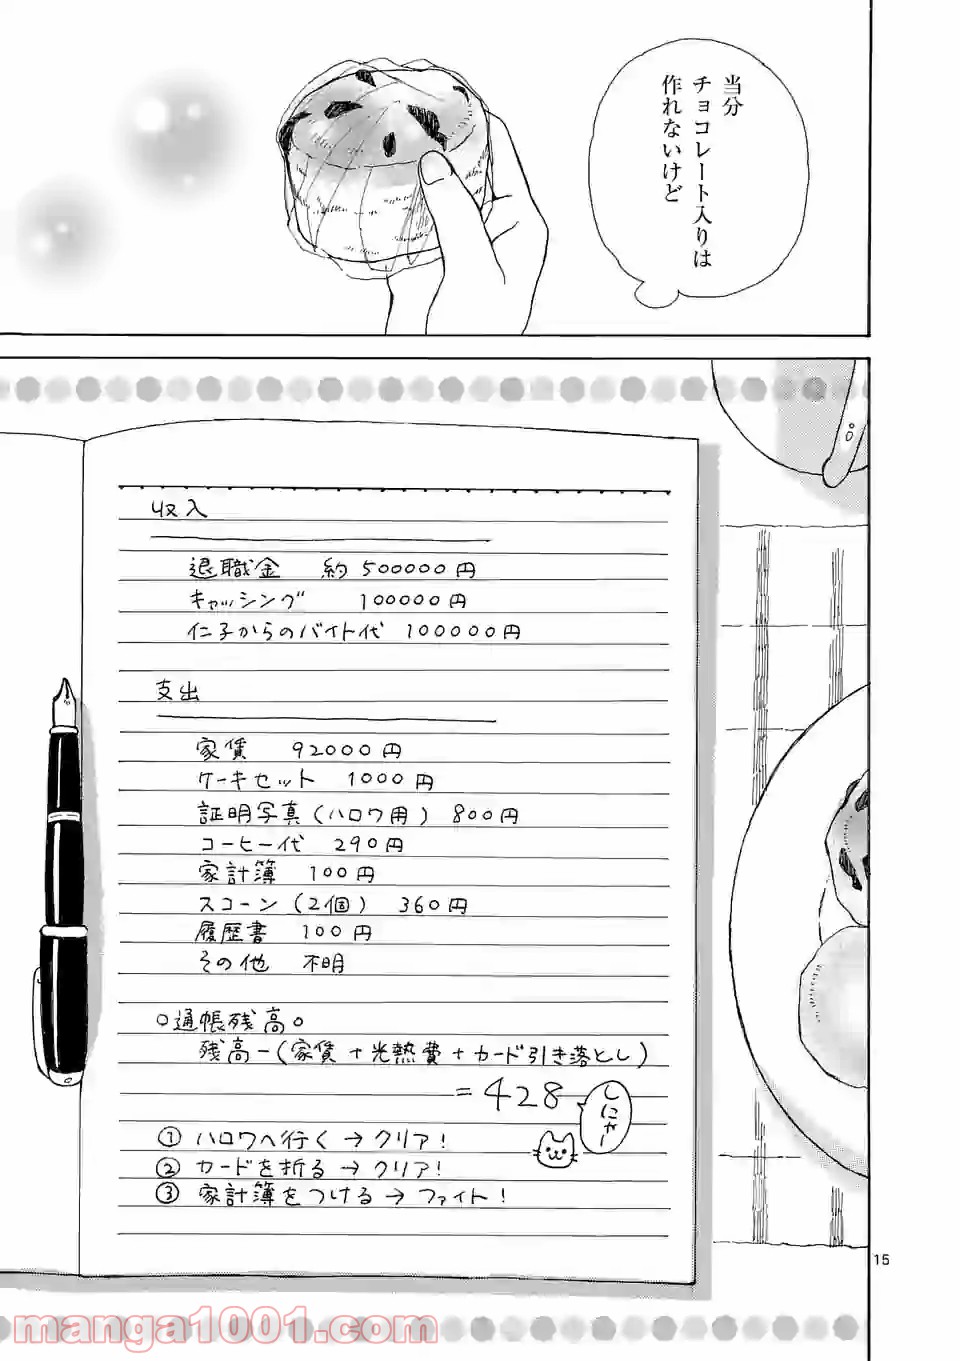 当分
チョコレート入りは
作れないけど
収入
退職金 約500000円
キャッシング 100000円
仁子からのバイト代 100000円
支出
家賃 92000円
ケーキセット 1000円
証明写真(ハロワ用) 800円
コーヒー代 290円
家計簿 100円
スコーン(2個) 360円
履歴書 100円
その他 不明
○通帳残高○
残高ー(家賃+光熱費+カード引き落とし)
=428
しにゃー
① ハロワへ行く→クリア!
② カードを折る→クリア!
③ 家計簿をつける→ファイト!
15
manga1001.com